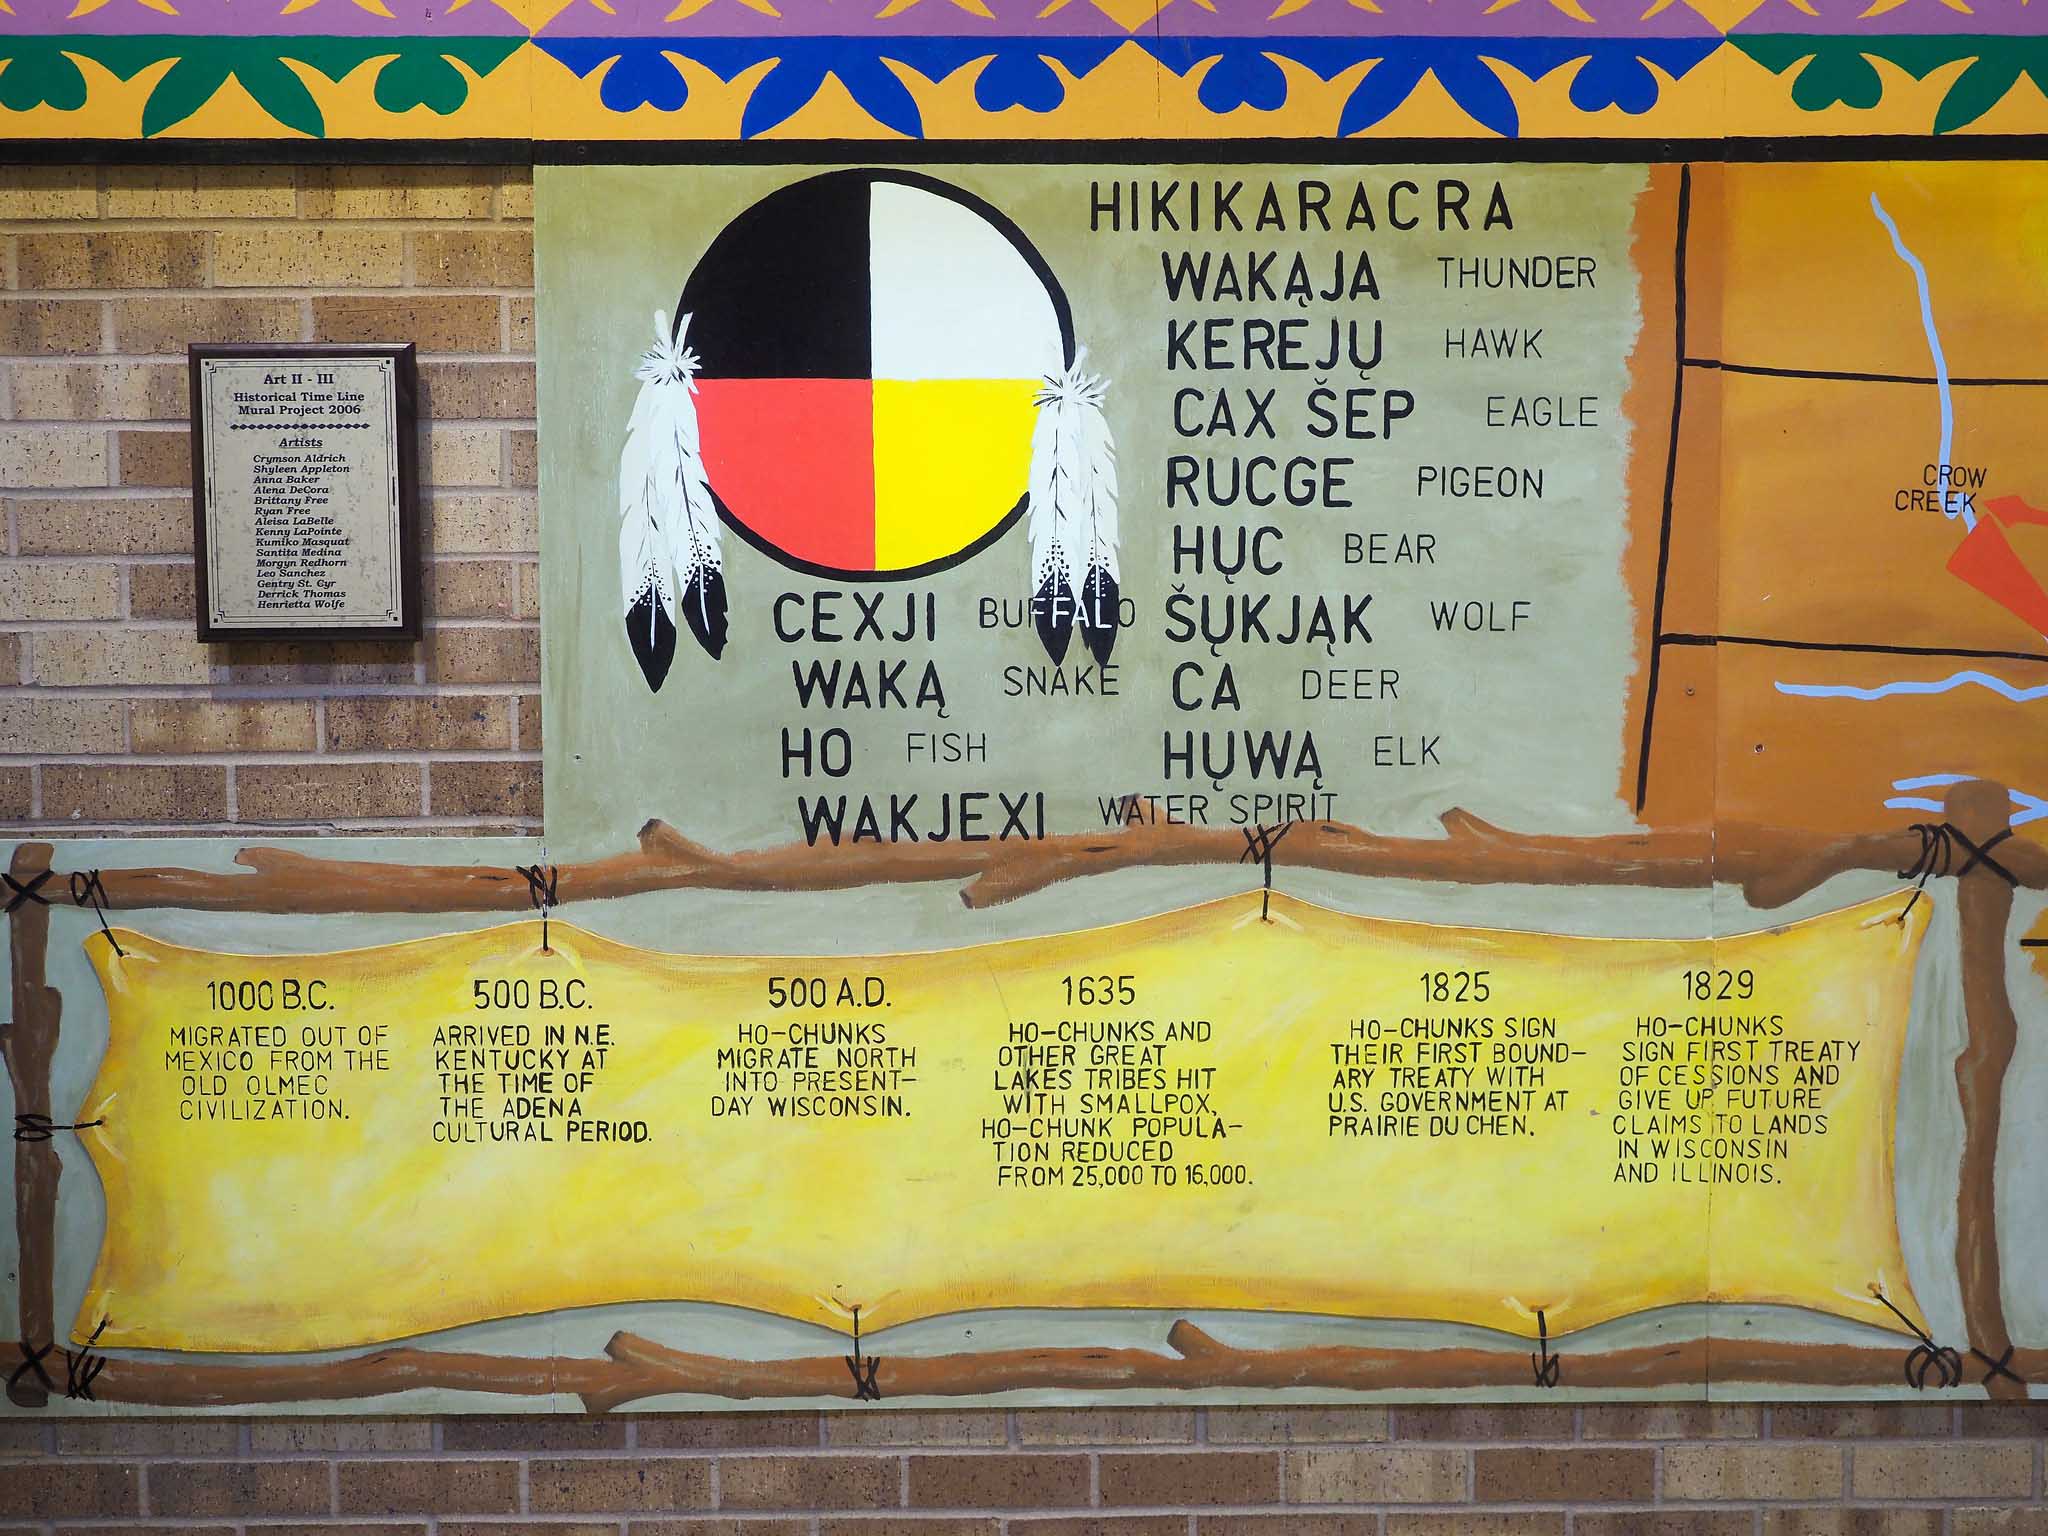 Art II - III
Historical Time Line
Mural Project 2006
Artists
Crymson Aldrich
Shyleen Appleton
Anna Baker
Alena DeCora
Brittany Free
Ryan Free
Aleisa LaBelle
Kenny LaPointe
Kumiko Masquat
Santita Medina
Morgyn Redhorn
Leo Sanchez
Gentry St. Cyr
Derrick Thomas
Henrietta Wolfe
HIKIKARACRA
WAKĄJA THUNDER
KEREJŲ HAWK
CAX ŠEP EAGLE
RUCGE PIGEON
HŲC BEAR
ŠŲKJĄK WOLF
CA DEER
HŲWĄ ELK
CEXJI BUFFALO
WAKĄ SNAKE
HO FISH
WAKJEXI WATER SPIRIT
CROW
CREEK
1000 B.C.
MIGRATED OUT OF
MEXICO FROM THE
OLD OLMEC
CIVILIZATION.
500 B.C.
ARRIVED IN N.E.
KENTUCKY AT
THE TIME OF
THE ADENA
CULTURAL PERIOD.
500 A.D.
HO-CHUNKS
MIGRATE NORTH
INTO PRESENT-
DAY WISCONSIN.
1635
HO-CHUNKS AND
OTHER GREAT
LAKES TRIBES HIT
WITH SMALLPOX,
HO-CHUNK POPULA-
TION REDUCED
FROM 25,000 TO 16,000.
1825
HO-CHUNKS SIGN
THEIR FIRST BOUND-
ARY TREATY WITH
U.S. GOVERNMENT AT
PRAIRIE DU CHEN.
1829
HO-CHUNKS
SIGN FIRST TREATY
OF CESSIONS AND
GIVE UP FUTURE
CLAIMS TO LANDS
IN WISCONSIN
AND ILLINOIS.